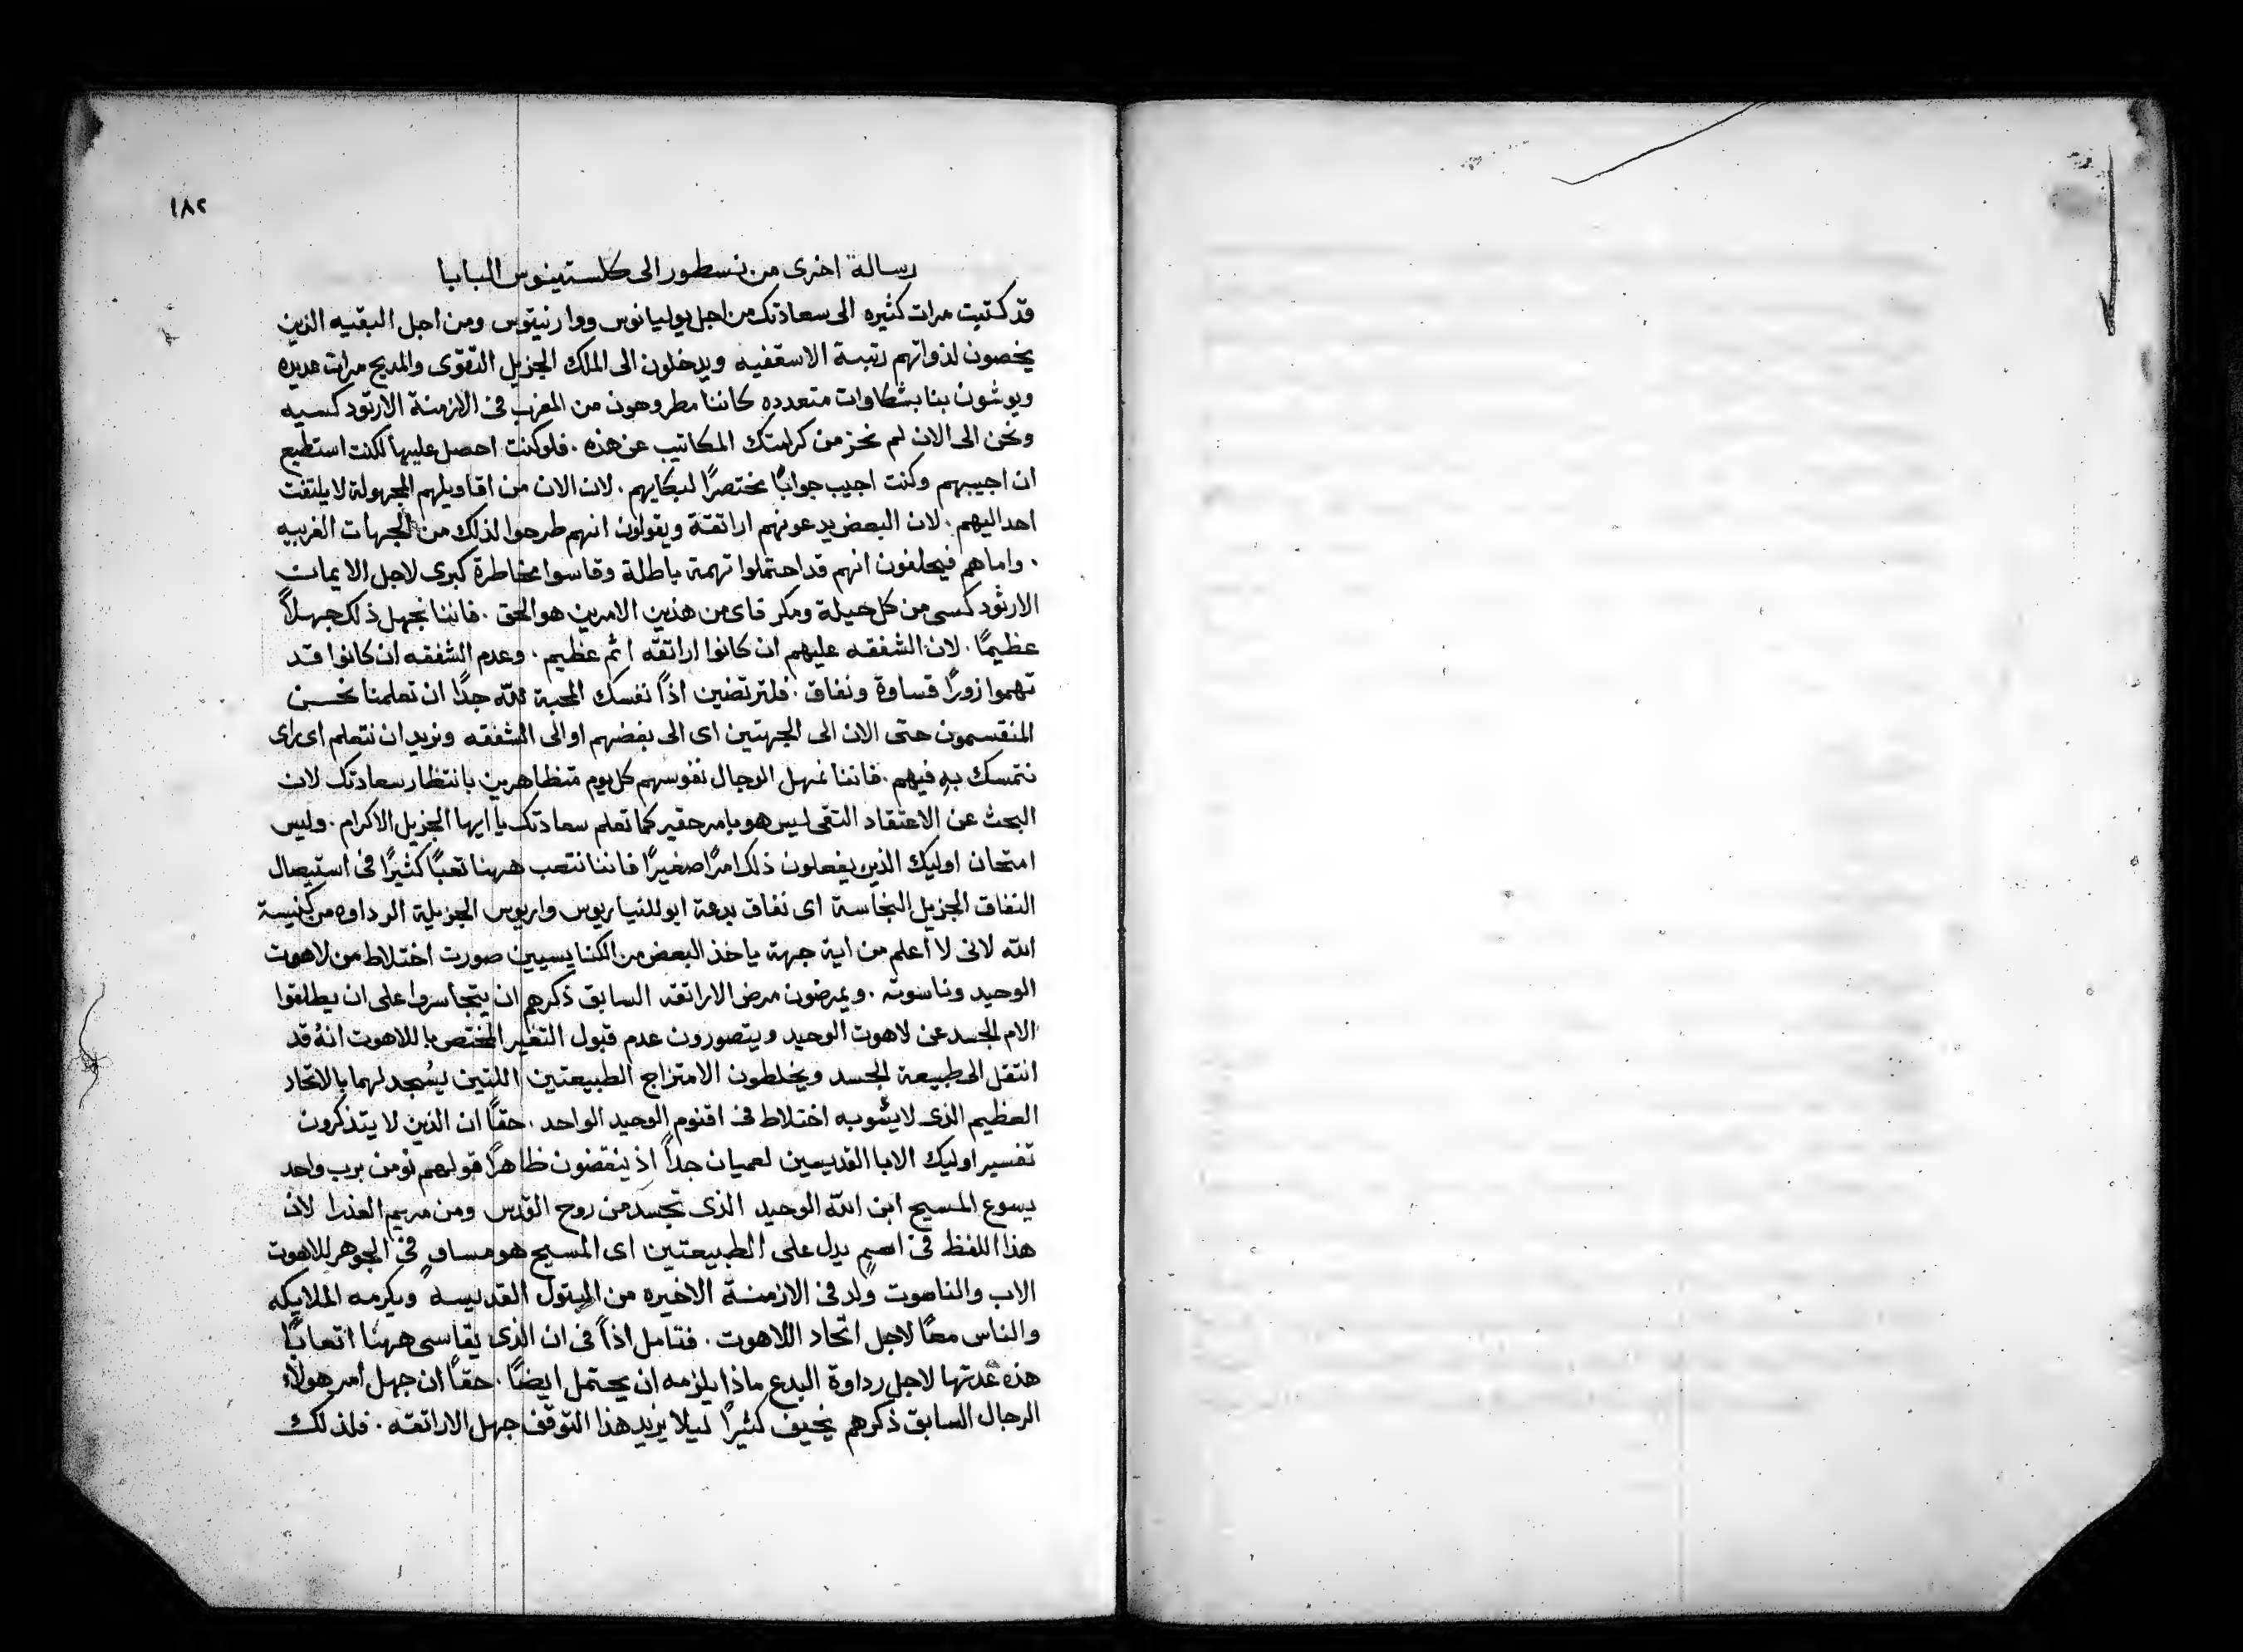 ١٨٢
رسالة اخرى من نسطور الى كلستينوس البابا
قد كتبت مرات كثيره الى سعادتك من اجل يوليانوس ووارنيتوس ومن اجل البقيه الذين
يخصون لذواتهم رتبة الاسقفيه ويدخلون الى الملك الجزيل التقوى والمديح مرات عديده
ويوشون بنا بشكاوات متعدده كاننا مطروهون من المغرب فى الازمنة الارتودكسيه
ونحن الى الان لم نحز من كرامتك المكاتيب عن هذه . فلو كنت احصل عليها لكنت استطيع
ان اجيبهم وكنت اجيب جوابًا مختصرًا لبكايهم . لان الان من اقاويلهم المجهولة لا يلتفت
احد اليهم . لان البعض يدعونهم اراتقة ويقولون انهم طرحوا لذلك من الجهات الغربيه
. واما هم فيحلفون انهم قد احتملوا تهمة باطلة وقاسوا مخاطرة كبرى لاجل الايمان
الارثودكسى من كل حيلة ومكر فاى من هذين الامرين هو الحق . فاننا نجهل ذلك جهلاً
عظيمًا . لان الشفقه عليهم ان كانوا اراتقه اثم عظيم . وعدم الشفقه ان كانوا قد
تهموا زورًا قساوة ونفاق . فلترتضين اذًا نفسك المحبة لله جدًا ان تعلمنا نحسن
المنقسمون حتى الان الى الجهتين اى الى بغضهم او الى الشفقه ونريد ان نتعلم اى راى
نتمسك به فيهم . فاننا نمهل الرجال نفوسهم كل يوم متظاهرين بانتظار سعادتك لان
البحث عن الاعتقاد التقى ليس هو بامر حقير كما تعلم سعادتك يا ايها الجزيل الاكرام . وليس
امتحان اوليك الذين يفعلون ذلك امرًا صغيرًا فاننا نتعب ههنا تعبًا كثيرًا فى استيصال
النفاق الجزيل النجاسة اى نفاق بدعة ابوللنياريوس واريوس الجزيلة الرداوه من كنيسة
الله لانى لا اعلم من اية جهة ياخذ البعض من الكنايسيين صورت اختلاط من لاهوت
الوحيد وناسوته . ويمرضون مرض الاراتقه السابق ذكرهم ان يتجاسروا على ان يطلقوا
الام الجسد عن لاهوت الوحيد ويتصورون عدم قبول التغير المختص باللاهوت انه قد
انتقل الى طبيعة الجسد ويخلطون الامتزاج الطبيعتين اللتين يُسجد لهما بالاتحاد
العظيم الذى لا يشوبه اختلاط فى اقنوم الوحيد الواحد . حقًا ان الذين لا يتذكرون
تفسير اوليك الابا القديسين لعميان جداً اذ ينقضون ظاهرًا قولهم نومن برب واحد
يسوع المسيح ابن الله الوحيد الذى تجسد من روح القدس ومن مريم العذرا لان
هذا اللفظ فى اسم يدل على الطبيعتين اى المسيح هو مساوٍ فى الجوهر للاهوت
الاب والناسوت ولد فى الازمنة الاخيره من البتول القديسة ويكرمه الملايكه
والناس معًا لاجل اتحاد اللاهوت . فتامل اذاً فى ان الذى يقاسى ههنا اتعابًا
هذه عدتها لاجل رداوة البدع ماذا يلزمه ان يحتمل ايضًا . حقًا ان جهل امر هولاء
الرجال السابق ذكرهم يخيف كثيراً ليلا يزيد هذا التوقف جهل الاراتقه . فلذلك